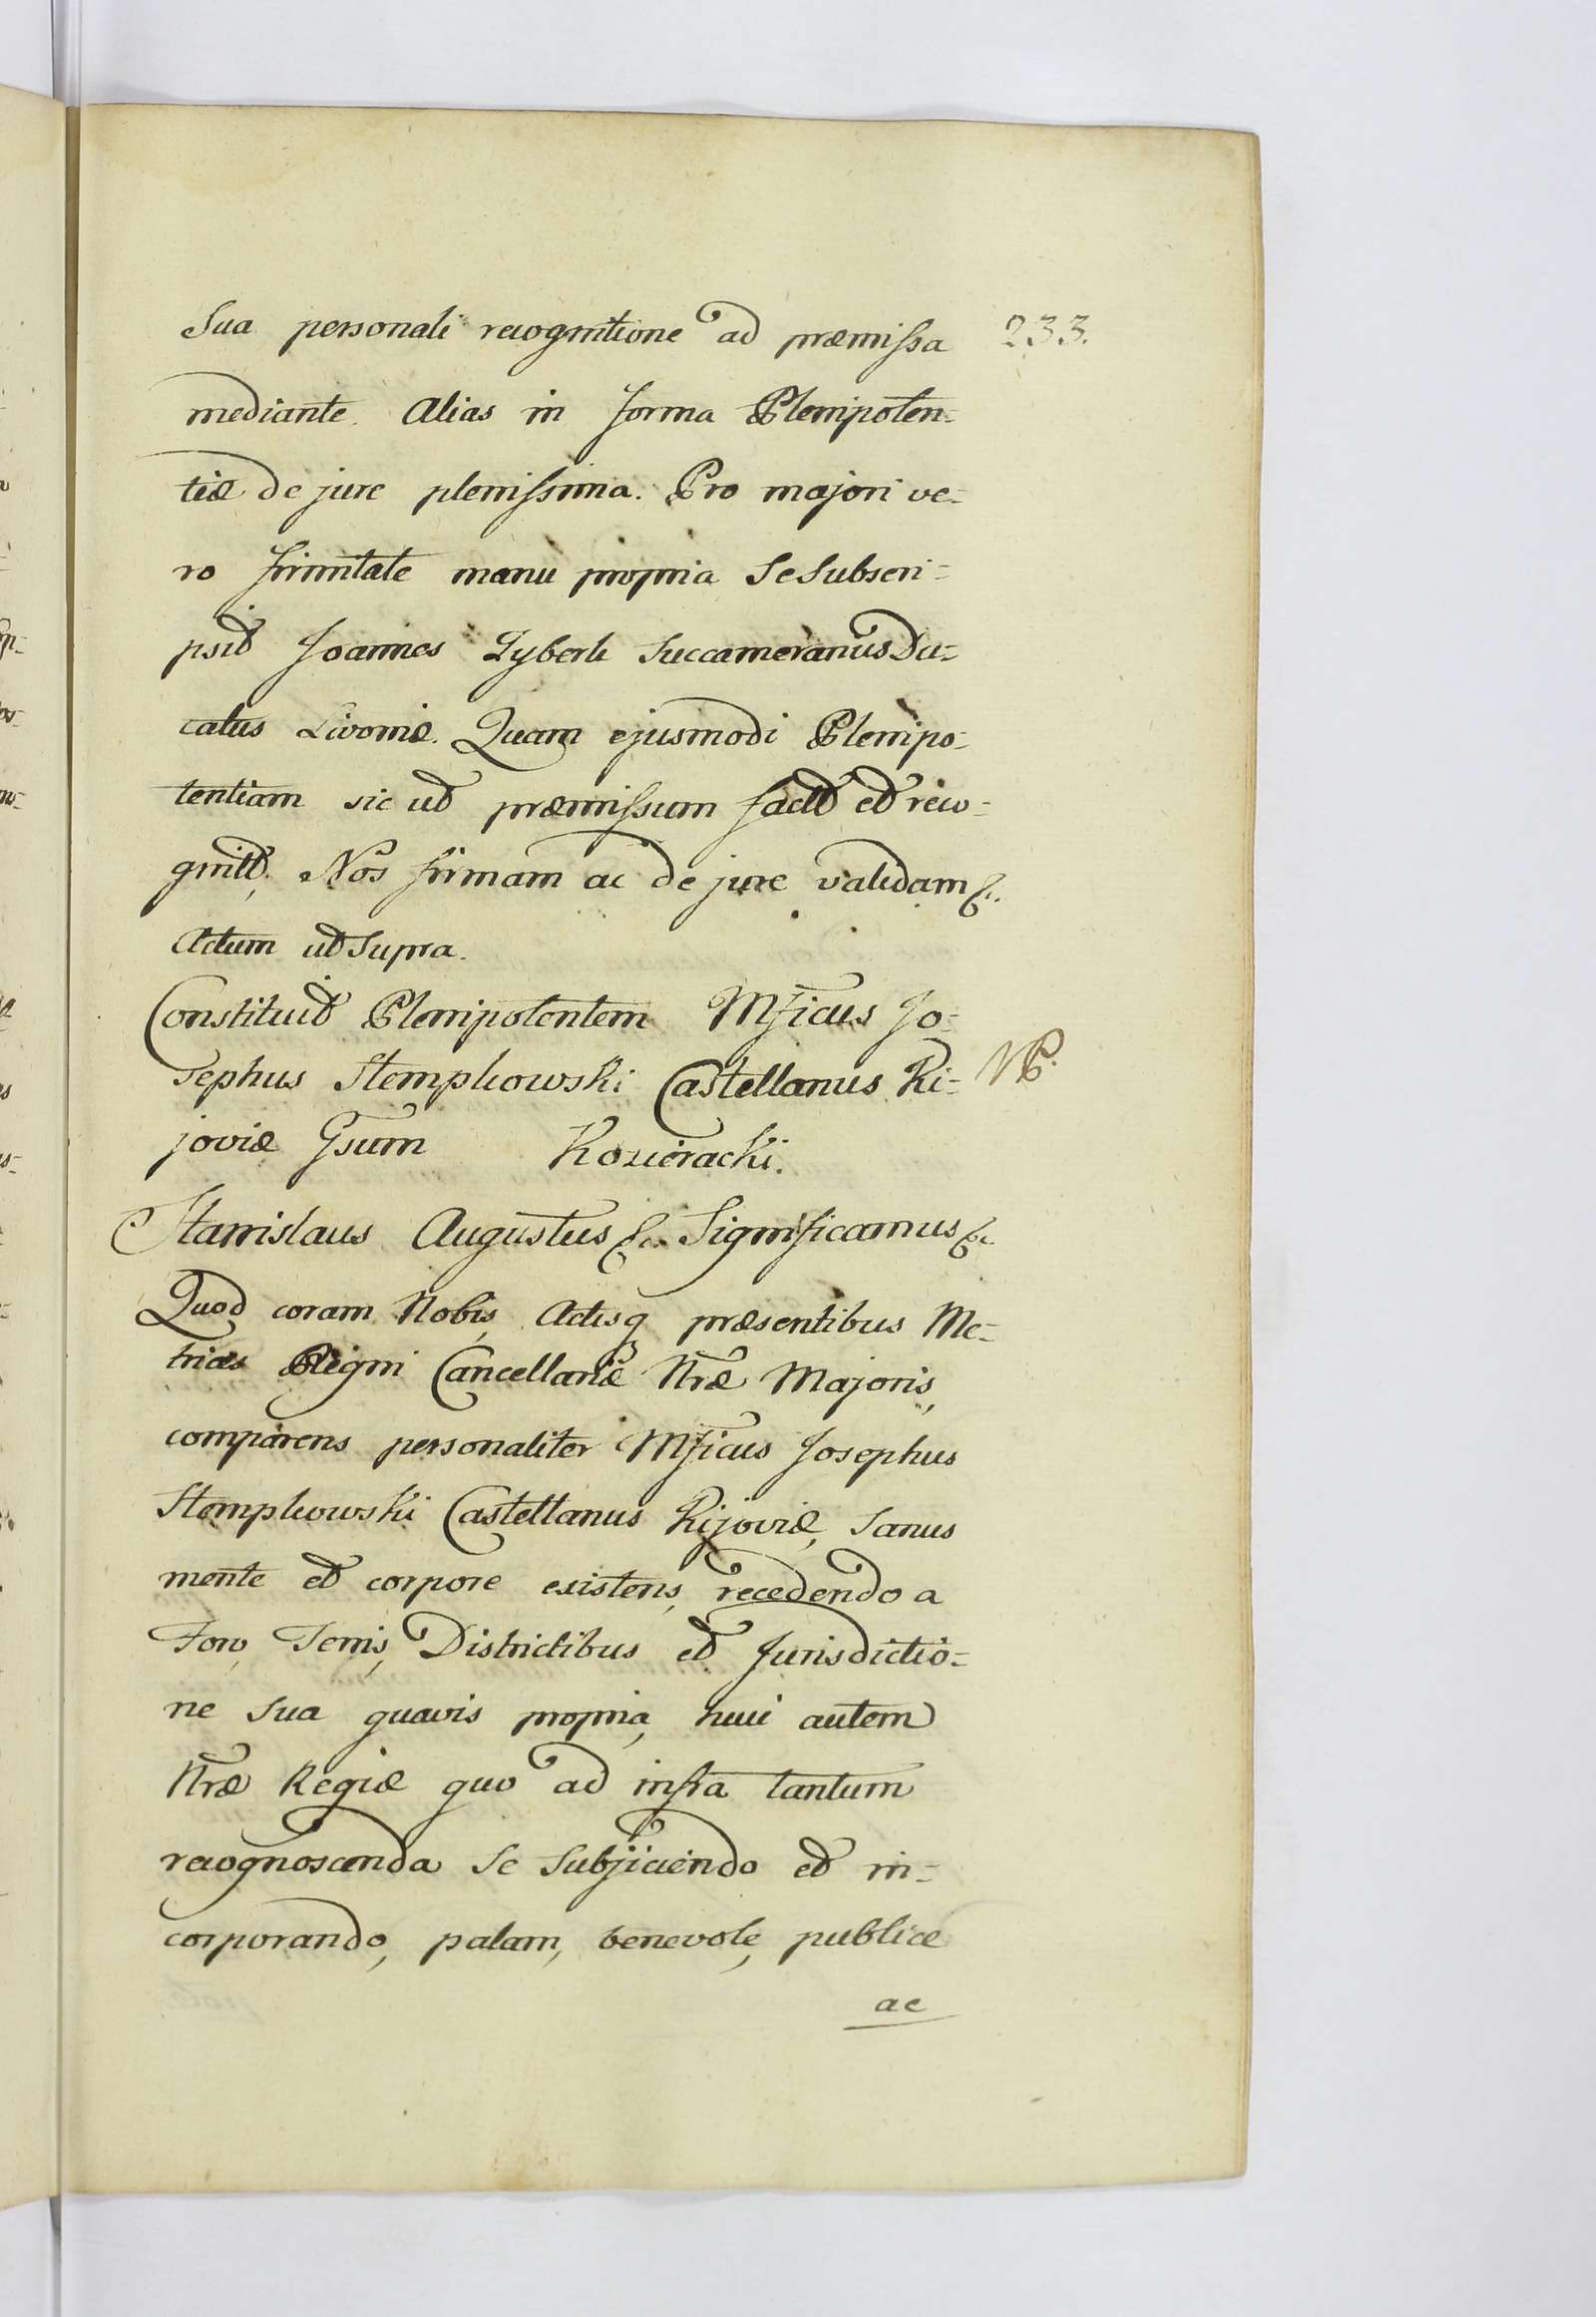 Sua personali recognitione ad præmissa 233.
mediante. Alias in forma Plenipoten-
tiæ de jure plenissima. Pro majori ve-
ro firmitate manu propria se subscri-
psit Joannes Zyberk Succameranus Du-
catus Livoniæ. Quam ejusmodi Plenipo-
tentiam sic ut præmissum factt et reco-
gnitt, Nos firmam ac de jure validam &c.
Actum ut supra.
Constituit Plenipotentem Mficus Jo-
sephus Stempkowski Castellanus Ki-
joviæ Gsum Kozieracki.
Stanislaus Augustus &c. Significamus &c.
Quod coram Nobis, Actisq præsentibus Me-
trices Regni Cancellariæ Nræ Majoris,
comparens personaliter Mficus Josephus
Stempkowski Castellanus Kijoviæ, sanus
mente et corpore existens, recedendo a
Foro, Terris, Districtibus et Jurisdictio-
ne sua quavis propria, huic autem
Nræ Regiæ quo ad infra tantum
recognoscenda se subjiciendo et in-
corporando, palam, benevole, publice
ac